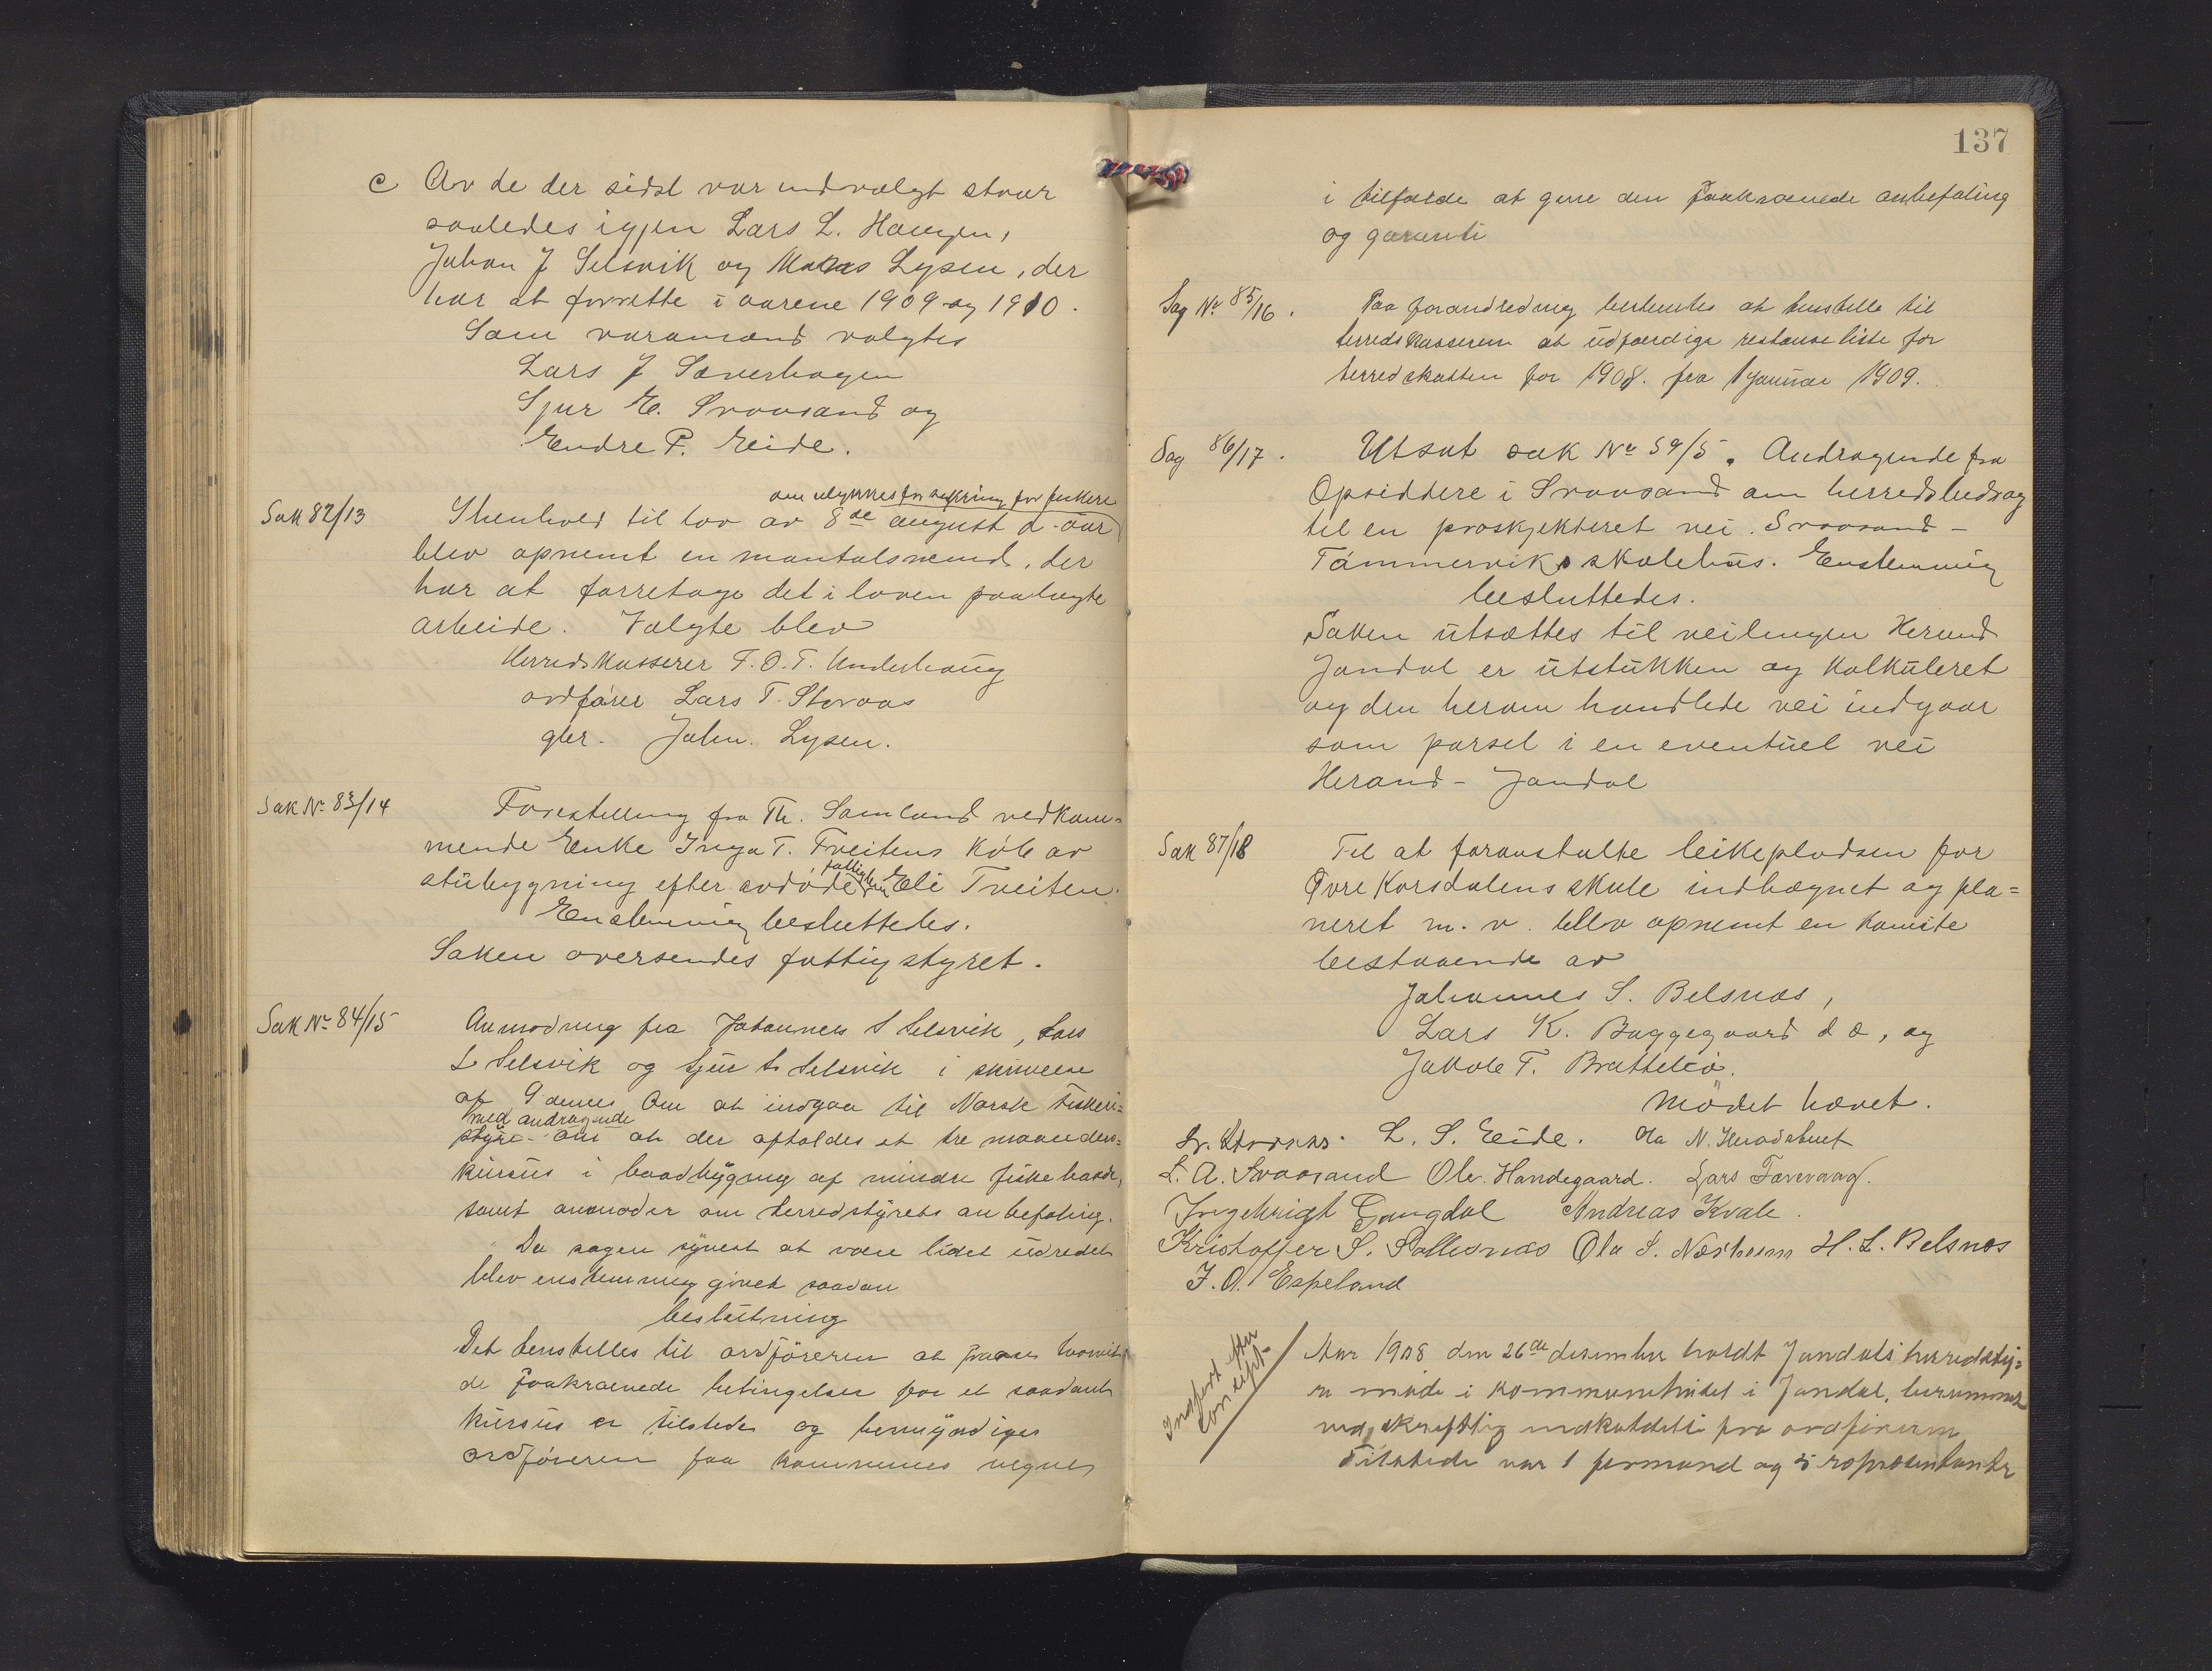 c Av de der sidst var indvalgt staar
saaledes igjen Lars L. Haugen,
Johan J Selsvik og Mattis Lysen, der
har at forrette i aarene 1909 og 1910.
Som varamænd valgtes
Lars J Sæverhagen
Sjur E. Svaasand og
Endre P. Eide.
Sak 82/13
om ulykkesforsikring for fiskere
I henhold til lov av 8de august d. aar
blev opnemt en mantalsnemd, der
har at forretage det i loven paalagte
arbeide. Valgte blev
Herredskasserer T. O. T. Underhaug
ordfører Lars T. Storaas
gbr. Johs. Lysen.
Sak No 83/14
Forestilling fra Th. Samland vedkom-
mende Enke Inga T. Tveitens kjøb av
stubygning efter avdøde fattiglem Eli Tveiten.
Enstemmig besluttedes.
Saken oversendes fattigstyret.
Sak No 84/15
Anmodning fra Johannes S Selsvik, Lars
L Selsvik og Sjur L. Selsvik i skrivelse
af 9 dennes Om at indgaa til Norsk Fiskeri-
med andragende
styre om at der afholdes et tre maaneders-
kursus i baadbygning af mindre fiskebaade,
samt anmoder om herredstyrets anbefaling.
Da sagen synest at være lidet udredet
blev enstemmig givet saadan
beslutning
Det henstilles til ordføreren at prøve hvorvidt
de paakrævede betingelser for et saadant
kursus er tilstede og bemyndiges
ordføreren paa kommunens vegne
137
i tilfælde at give den paakrævede anbefaling
og garanti
Sag No 85/16.
Paa forandledning bestemtes at henstille til
herredskasseren at udfærdige restanseliste for
herredskatten for 1908. fra 1 januar 1909.
Sag 86/17.
Utsat sak No 59/5. Andragende fra
Opsiddere i Svaasand om herredsbidrag
til en prosjekteret vei Svaasand -
Tømmerviks skolehus. Enstemmig
besluttedes.
Saken utsættes til veilengen Herand
Jondal er utstukken og kalkuleret
og den herom handlede vei indgaar
som parsel i en eventuel vei
Herand - Jondal
Sak 87/18
Til at foranstalte leikepladsen for
Øvre Korsdalens skule indhegnet og pla-
neret m. v. blev opnemt en komite
bestaaende av
Johannes S. Belsnæs,
Lars K. Byggegaard d æ, og
Jakob T. Brattebø.
Mødet hævet.
Lr. Storaas. L. S. Eide. Ola N.
L. A. Svaasand Ole Handegaard. Lars Torevaag.
Ingebrigt Gangdal Andreas Kvale.
Kristoffer S. Sollesnæs Ola S. Næsheim H. L. Belsnes
J. O. Espeland
Indført efter
konsept.
Aar 1908 den 26de desember holdt Jondals herredsty-
re møde i kommunehuset i Jondal, berammet
ved skriftlig indkaldelse fra ordføreren
Tilstede var 1 formand og 5 repræsentanter